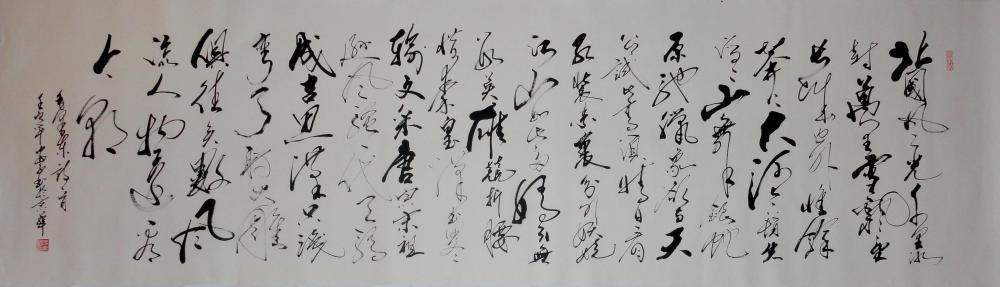 北國風光千里冰
封萬里雪飄望
長城内外惟餘
莽〻大河上下頓失
滔〻山舞銀蛇
原馳蠟象欲與天
公試比高須晴日看
紅裝素裹分外妖嬈
江山如此多嬌引無
數英雄競折腰
惜秦皇漢武略
輸文采唐宗宋祖
稍遜風騷一代天驕
成吉思汗只識
彎弓射大雕
俱往矣數風
流人物還看
今朝
毛澤東詞一首